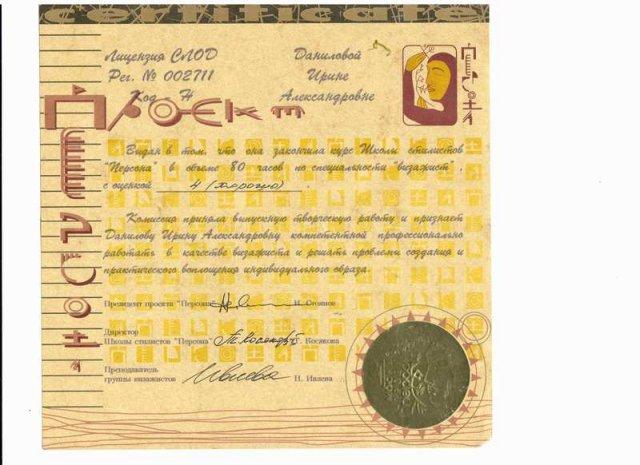 certificate
Лицензия СЛОД
Рег. № 002711
Код Н
Даниловой
Ирине
Александровне
Персона
Проект
Выдан в том, что она закончила курс Школы стилистов
"Персона" в объеме 80 часов по специальности "визажист",
с оценкой 4 (хорошо).
Комиссия приняла выпускную творческую работу и признает
Данилову Ирину Александровну компетентной профессионально
работать в качестве визажиста и решать проблемы создания и
практического воплощения индивидуального образа.
Президент проекта "Персона" И. Стоянов
Директор
Школы стилистов "Персона" Т. Косякова
Преподаватель
группы визажистов Ивлева Н. Ивлева